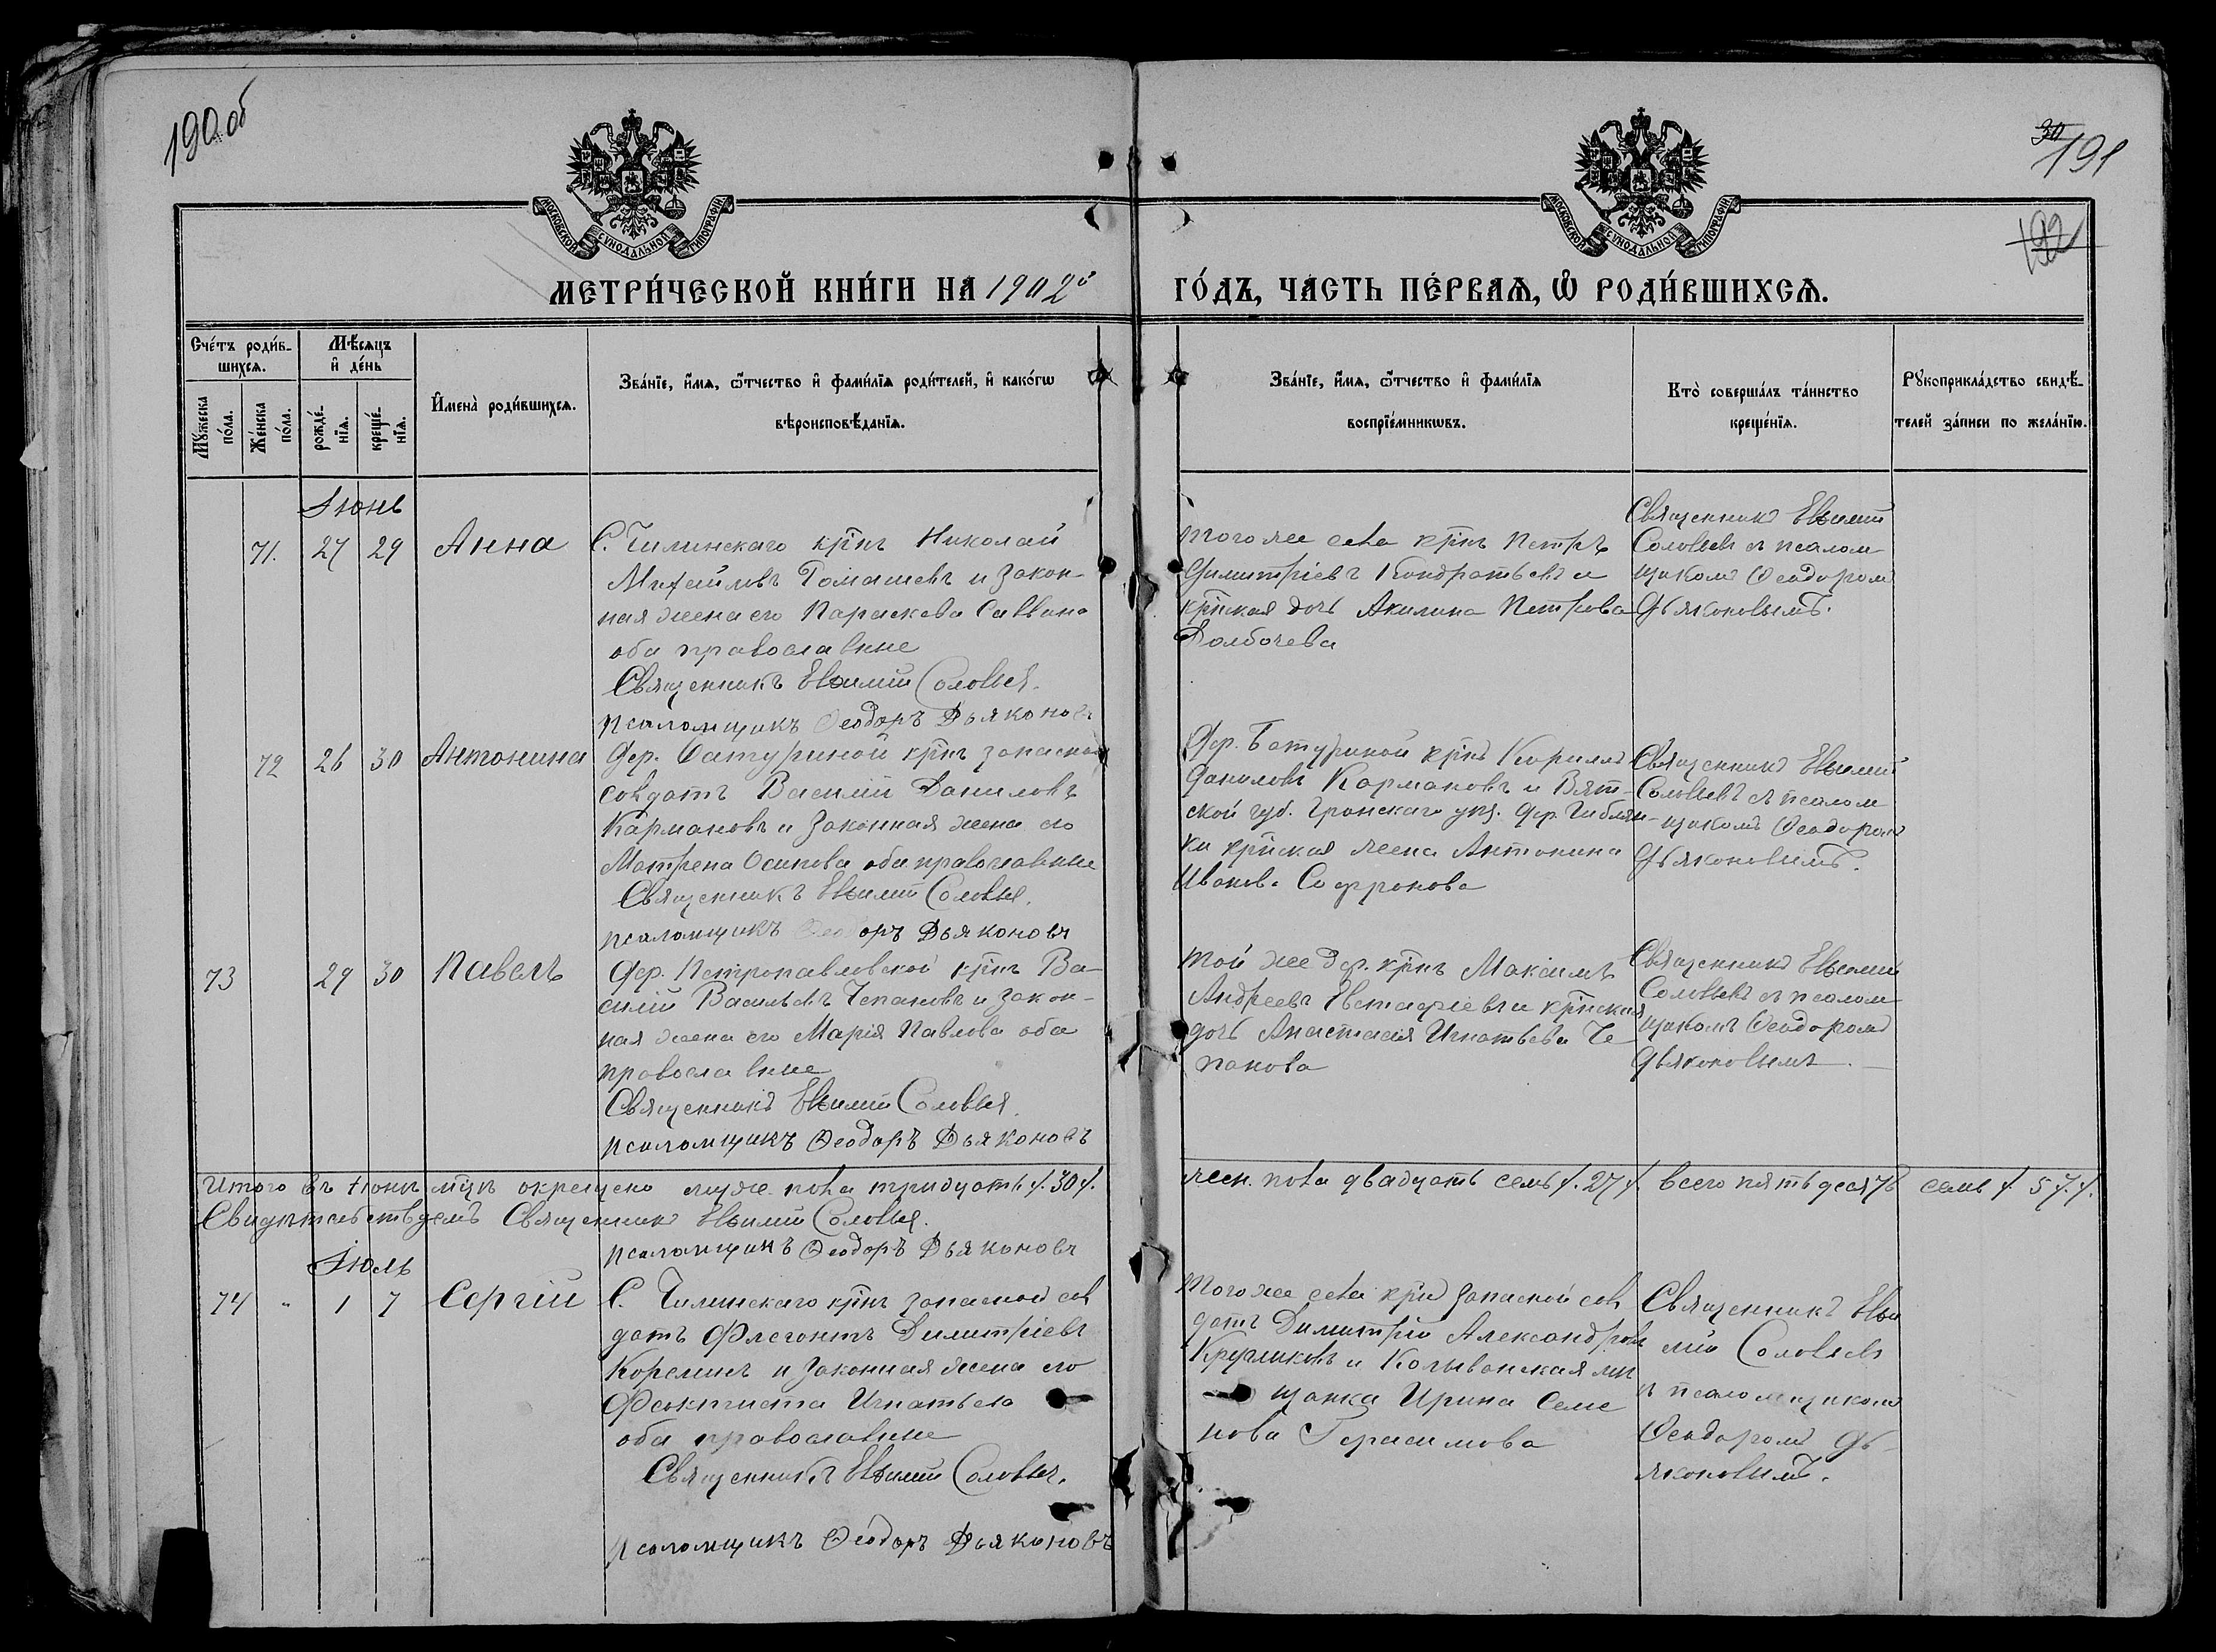 190 об
30
191
192
МОСКОВСКОЙ СѴНОДАЛЬНОЙ ТИПОГРАФІИ
МОСКОВСКОЙ СѴНОДАЛЬНОЙ ТИПОГРАФІИ
МЕТРИ́ЧЕСКОЙ КНИ́ГИ НА 1902й ГО́ДЪ, ЧАСТЬ ПЕ́РВАѦ, Ѡ РОДИ́ВШИХСѦ.
Сче́тъ роди́в-
шихсѧ.
Мѣсѧцъ
и де́нь
Мꙋ́жеска
по́ла.
Же́нска
по́ла.
рожде́-
нїѧ.
креще́-
нїѧ.
Имена̀ роди́вшихсѧ.
Зва́нїе, и́мѧ, ѻ҆́тчество и фами́лїѧ роди́телей, и како́гѡ
вѣроисповѣ́данїѧ.
Зва́нїе, и́мѧ, ѻ҆́тчество и фами́лїѧ
воспрїе́мникѡвъ.
Кто̀ соверша́лъ та́инство
креще́нїѧ.
Рꙋкоприкла́дство свидѣ́-
телей за́писи по жела́нїю.
Іюнь
71. 27 29 Анна
С. Чилинскаго крѣнъ Николай
Михайловъ Томашевъ и закон-
ная жена его Параскева Саввина
оба православные
Священникъ Евѳимій Соловьев.
псаломщикъ Ѳеодоръ Дьяконовъ
того же села крѣнъ Петръ
Димитріевъ Кондратьевъ и
крѣнская дочь Акилина Петрова
Долбачева
Священникъ Евѳимій
Соловьевъ съ псалом
щикомъ Ѳеодоромъ
Дьяконовымъ.
72 26 30 Антонина
Дер. Батуриной крѣнъ запасной
солдатъ Василій Даниловъ
Кармановъ и законная жена его
Матрена Осипова оба православные
Священникъ Евѳимій Соловьев.
псаломщикъ Ѳеодоръ Дьяконовъ
Дер. Батуриной крѣнъ Кирилъ
Даниловъ Кармановъ и Вят-
ской губ. уѣз. дер.
ки крѣнская жена Антонина
Иванова Софронова
Священникъ Евѳимій
Соловьевъ съ псалом
щикомъ Ѳеодоромъ
Дьяконовымъ.
73 29 30 Павелъ
Дер. Петропавловской крѣнъ Ва-
силій Васильевъ Чепановъ и закон-
ная жена его Марія Павлова оба
православные
Священникъ Евѳимій Соловьев.
псаломщикъ Ѳеодоръ Дьяконовъ
той же дер. крѣнъ Максимъ
Андреевъ Евстафіевъ и крѣнская
дочь Анастасія Игнатьева Че
панова
Священникъ Евѳимій
Соловьевъ съ псалом
щикомъ Ѳеодоромъ
Дьяконовымъ.
Итого въ Іюнѣ мцѣ окрещено муже. пола тридцать /. 30 /. жен. пола двадцать семь /. 27 /. всего пятьдесятъ семь /. 57. /.
Свидѣтельствуемъ Священникъ Евѳимій Соловьев.
псаломщикъ Ѳеодоръ Дьяконовъ
Іюль
74 " 1 7 Сергій
С. Чилинскаго крѣнъ запасной сол
датъ Флегонтъ Димитріевъ
Корелинъ и законная жена его
Феоктиста Игнатьева
оба православные
Священникъ Евѳимій Соловьев.
псаломщикъ Ѳеодоръ Дьяконовъ
того же села крѣн запасной сол
датъ Димитрій Александровъ
Кругликовъ и Колыванская мѣ
щанка Ирина Семе
нова Герасимова
Священникъ Евѳи
мій Соловьевъ
съ псаломщикомъ
Ѳеодоромъ Дь-
яконовымъ.